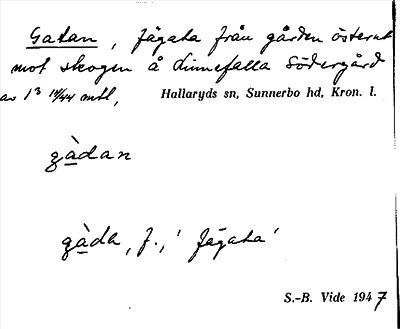 Gatan, fägata från gården österut
mot skogen å Linnefalla Södergård
av 1³ 14/44 mtl, Hallaryds sn, Sunnerbo hd, Kron. l.
gàdan
gàda, f., 'fägata'
S.-B. Vide 1947